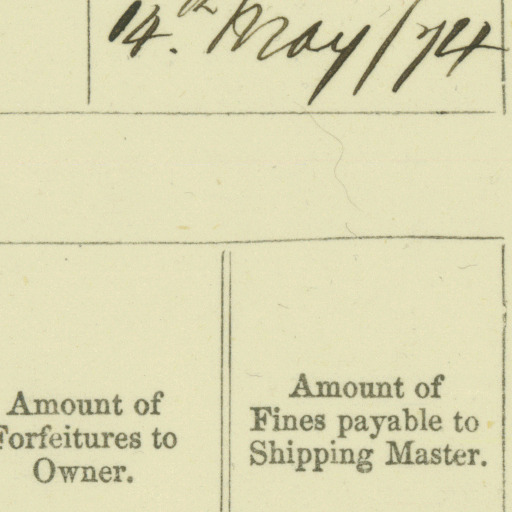 14th May/74
Amount of
Forfeitures to
Owner.
Amount of
Fines payable to
Shipping Master.